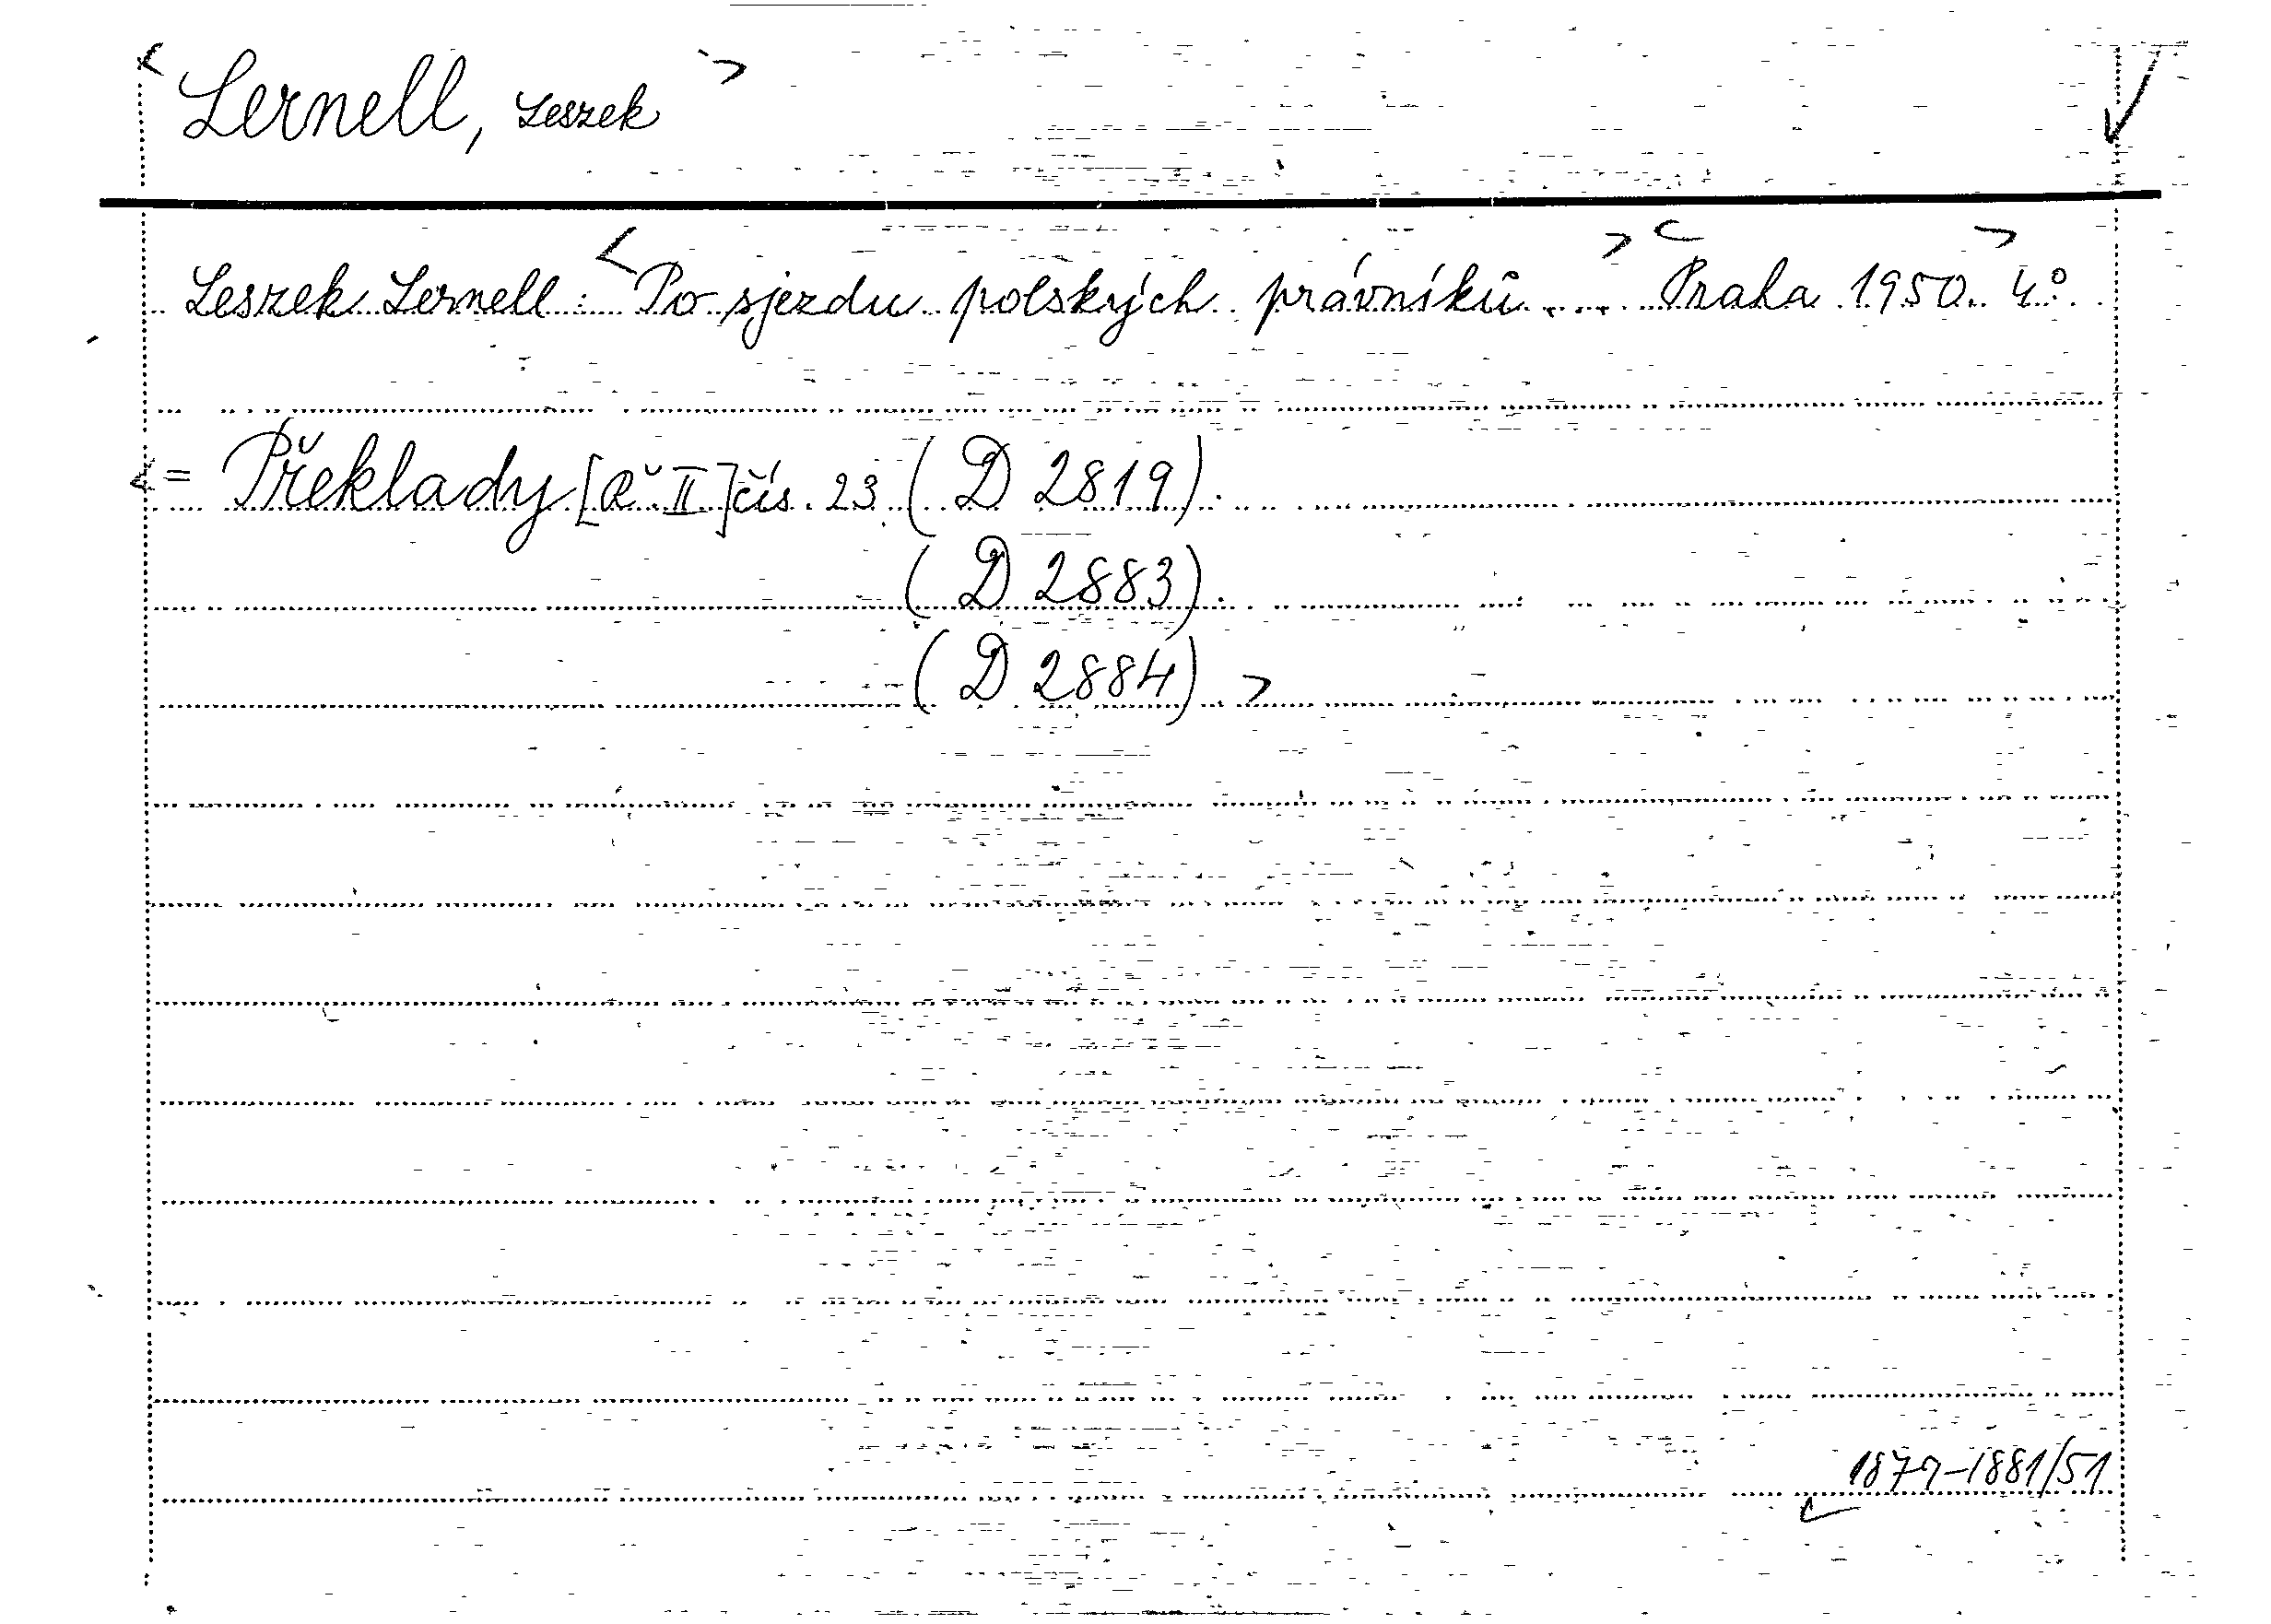 < Lernell, Leszek >
Leszek Lernell: < Po sjezdu polských právníků ... > < Praha 1950. > 4°.
< = Překlady [Ř. II] čís. 23 (D 2819).
(D 2883).
(D 2884). >
1879-1881/51